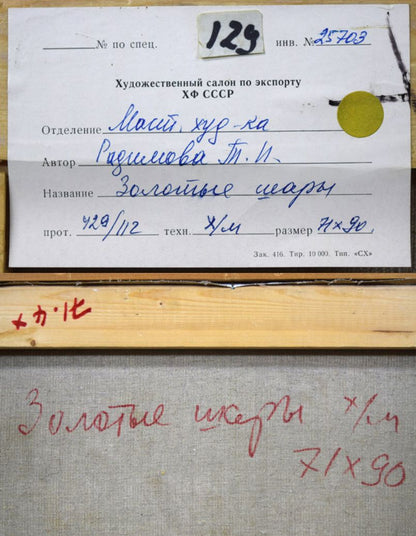 № по спец. 129 инв. № 25703
Художественный салон по экспорту
ХФ СССР
Отделение Маст. худ-ка
Автор Радимова Т. И.
Название Золотые шары
прот. 429/112 техн. х/м размер 71х90
Зак. 416. Тир. 10 000. Тип. «СХ»
Золотые шары х/м
71х90